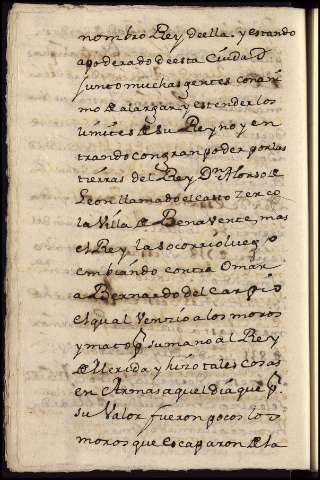 nombro Rey de ella. y estando
apoderado de esta Ciudad
junto muchas gentes con ani
mo de alargar y estender los
limites de su Reyno y en
trando con gran poder por las
tierras del Rey Dn. Alonso de
Leon llamado el casto zerco
la Villa de Benavente, mas
el Rey la socorrio luego
embiando contra Omar
a Bernardo del Carpio
el qual Venzio a los moros
y mato pr. su mano al Rey
de Merida y hizo tales cosas
en Armas aquel dia que pr.
su Valor fueron pocos lo
moros que escaparon de la